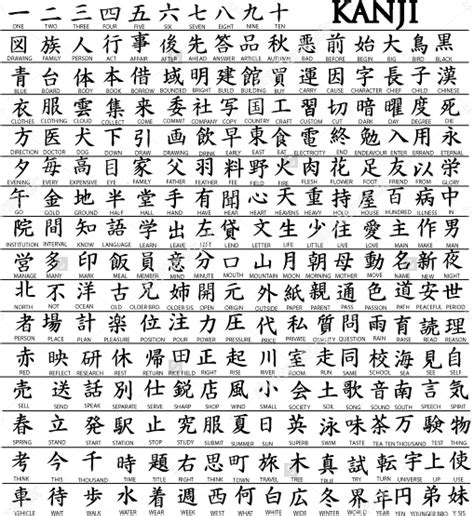 一 二 三 四 五 六 七 八 九 十 KANJI
ONE TWO THREE FOUR FIVE SIX SEVEN EIGHT NINE TEN
図 族 人 行 事 後 先 答 品 秋 悪 前 始 大 鳥 黒
DRAWING FAMILY PERSON ACT AFFAIR AFTER AHEAD ANSWER ARTICLE AUTUMN BAD BEFORE BEGIN BIG BIRD BLACK
青 台 体 本 借 域 明 建 館 買 運 因 字 長 子 漢
BLUE BOARD BODY BOOK BORROW BOUNDED BRIGHT BUILD BUILDING BUY CARRY CAUSE CHARACTER CHIEF CHILD CHINESE
衣 服 雲 集 来 委 社 写 国 工 習 切 暗 曜 度 死
CLOTHES CLOTHING CLOUD COLLECT COME COMMIT COMPANY COPY COUNTRY CRAFT CUSTOM CUT DARK DAY DEGREE DIE
方 医 犬 下 引 画 飲 早 東 食 電 終 勉 入 用 永
DIRECTION DOCTOR DOG DOWN DRAW DRAWING DRINK EARLY EAST EAT ELECTRICITY END ENDEAVOUR ENTER ERRAND ETERNAL
夕 毎 高 目 家 父 羽 料 野 火 肉 花 足 友 以
EVENING EVERY EXPENSIVE EYE FAMILY FATHER FEATHER FEE FIRE FLESH FLOWER FOOT FRIEND FROM
午 金 地 半 堂 手 有 心 天 重 持 屋 百 病 中
GO GOLD GROUND HALF HALL HAND HAVE HEAR HEART HEAVENS HEAVY HOLD HOUSE HUNDRED ILLNESS IN
院 間 知 語 学 出 左 貸 文 生 少 住 愛 主 作 男
INSTITUTION INTERVAL KNOW LANGUAGE LEARN LEAVE LEFT LEND LETTER LIFE LITTLE LIVE LOVE MAIN MAKE MAN
営 多 印 飯 員 意 分 口 山 月 朝 母 動 名 新 夜
MANAGE MANY MARK MEAL MEMBER MIND MINUTE MOUTH MOUNTAIN MOON MORNING MOTHER MOVE NAME NEW NIGHT
北 不 洋 古 兄 姉 開 元 外 紙 親 通 色 道 安 世
NORTH NOT OCEAN OLD OLDER BRO. OLDER SIS. OPEN ORIGIN OUTSIDE PAPER PARENT PASS PASSION PATH PEACEFUL PERIOD
者 場 計 楽 位 注 力 圧 代 私 質 問 雨 育 読 理
PERSON PLACE PLAN PLEASURE POSITION POUR POWER PRESSURE PRICE PRIVATE QUALITY QUESTION RAIN RAISE READ REASON
赤 映 研 休 帰 田 正 起 川 室 走 同 校 海 見 自
RED REFLECT RESEARCH REST RETURN RICE FIELD RIGHT RISE RIVER ROOM RUN SAME SCHOOL SEA SEE SELF
売 送 話 別 仕 鋭 店 風 小 会 土 歌 音 南 言 気
SELL SEND SPEAK SEPARATE SERVE SHARP SHOP WIND SMALL SOCIETY SOIL SONG SOUND SOUTH SPEECH SPIRIT
春 立 発 駅 止 究 服 夏 日 英 泳 味 茶 万 験 物
SPRING STAND START STATION STOP STUDY SUBMIT SUMMER SUN SWIM TASTE TEA TEN THOUSAND TEST THING
考 今 千 時 題 右 思 町 旅 木 真 試 転 上 使
THINK THIS THOUSAND TIME TITLE RIGHT THINK TOWN TRAVEL TREE TRUE TRY TURN UP USE
車 待 歩 水 着 週 西 何 白 女 年 円 弟 妹
VEHICLE WAIT WALK WATER WEAR WEEK WEST WHAT WHITE WOMAN YEAR YEN YOUNGER BRO.